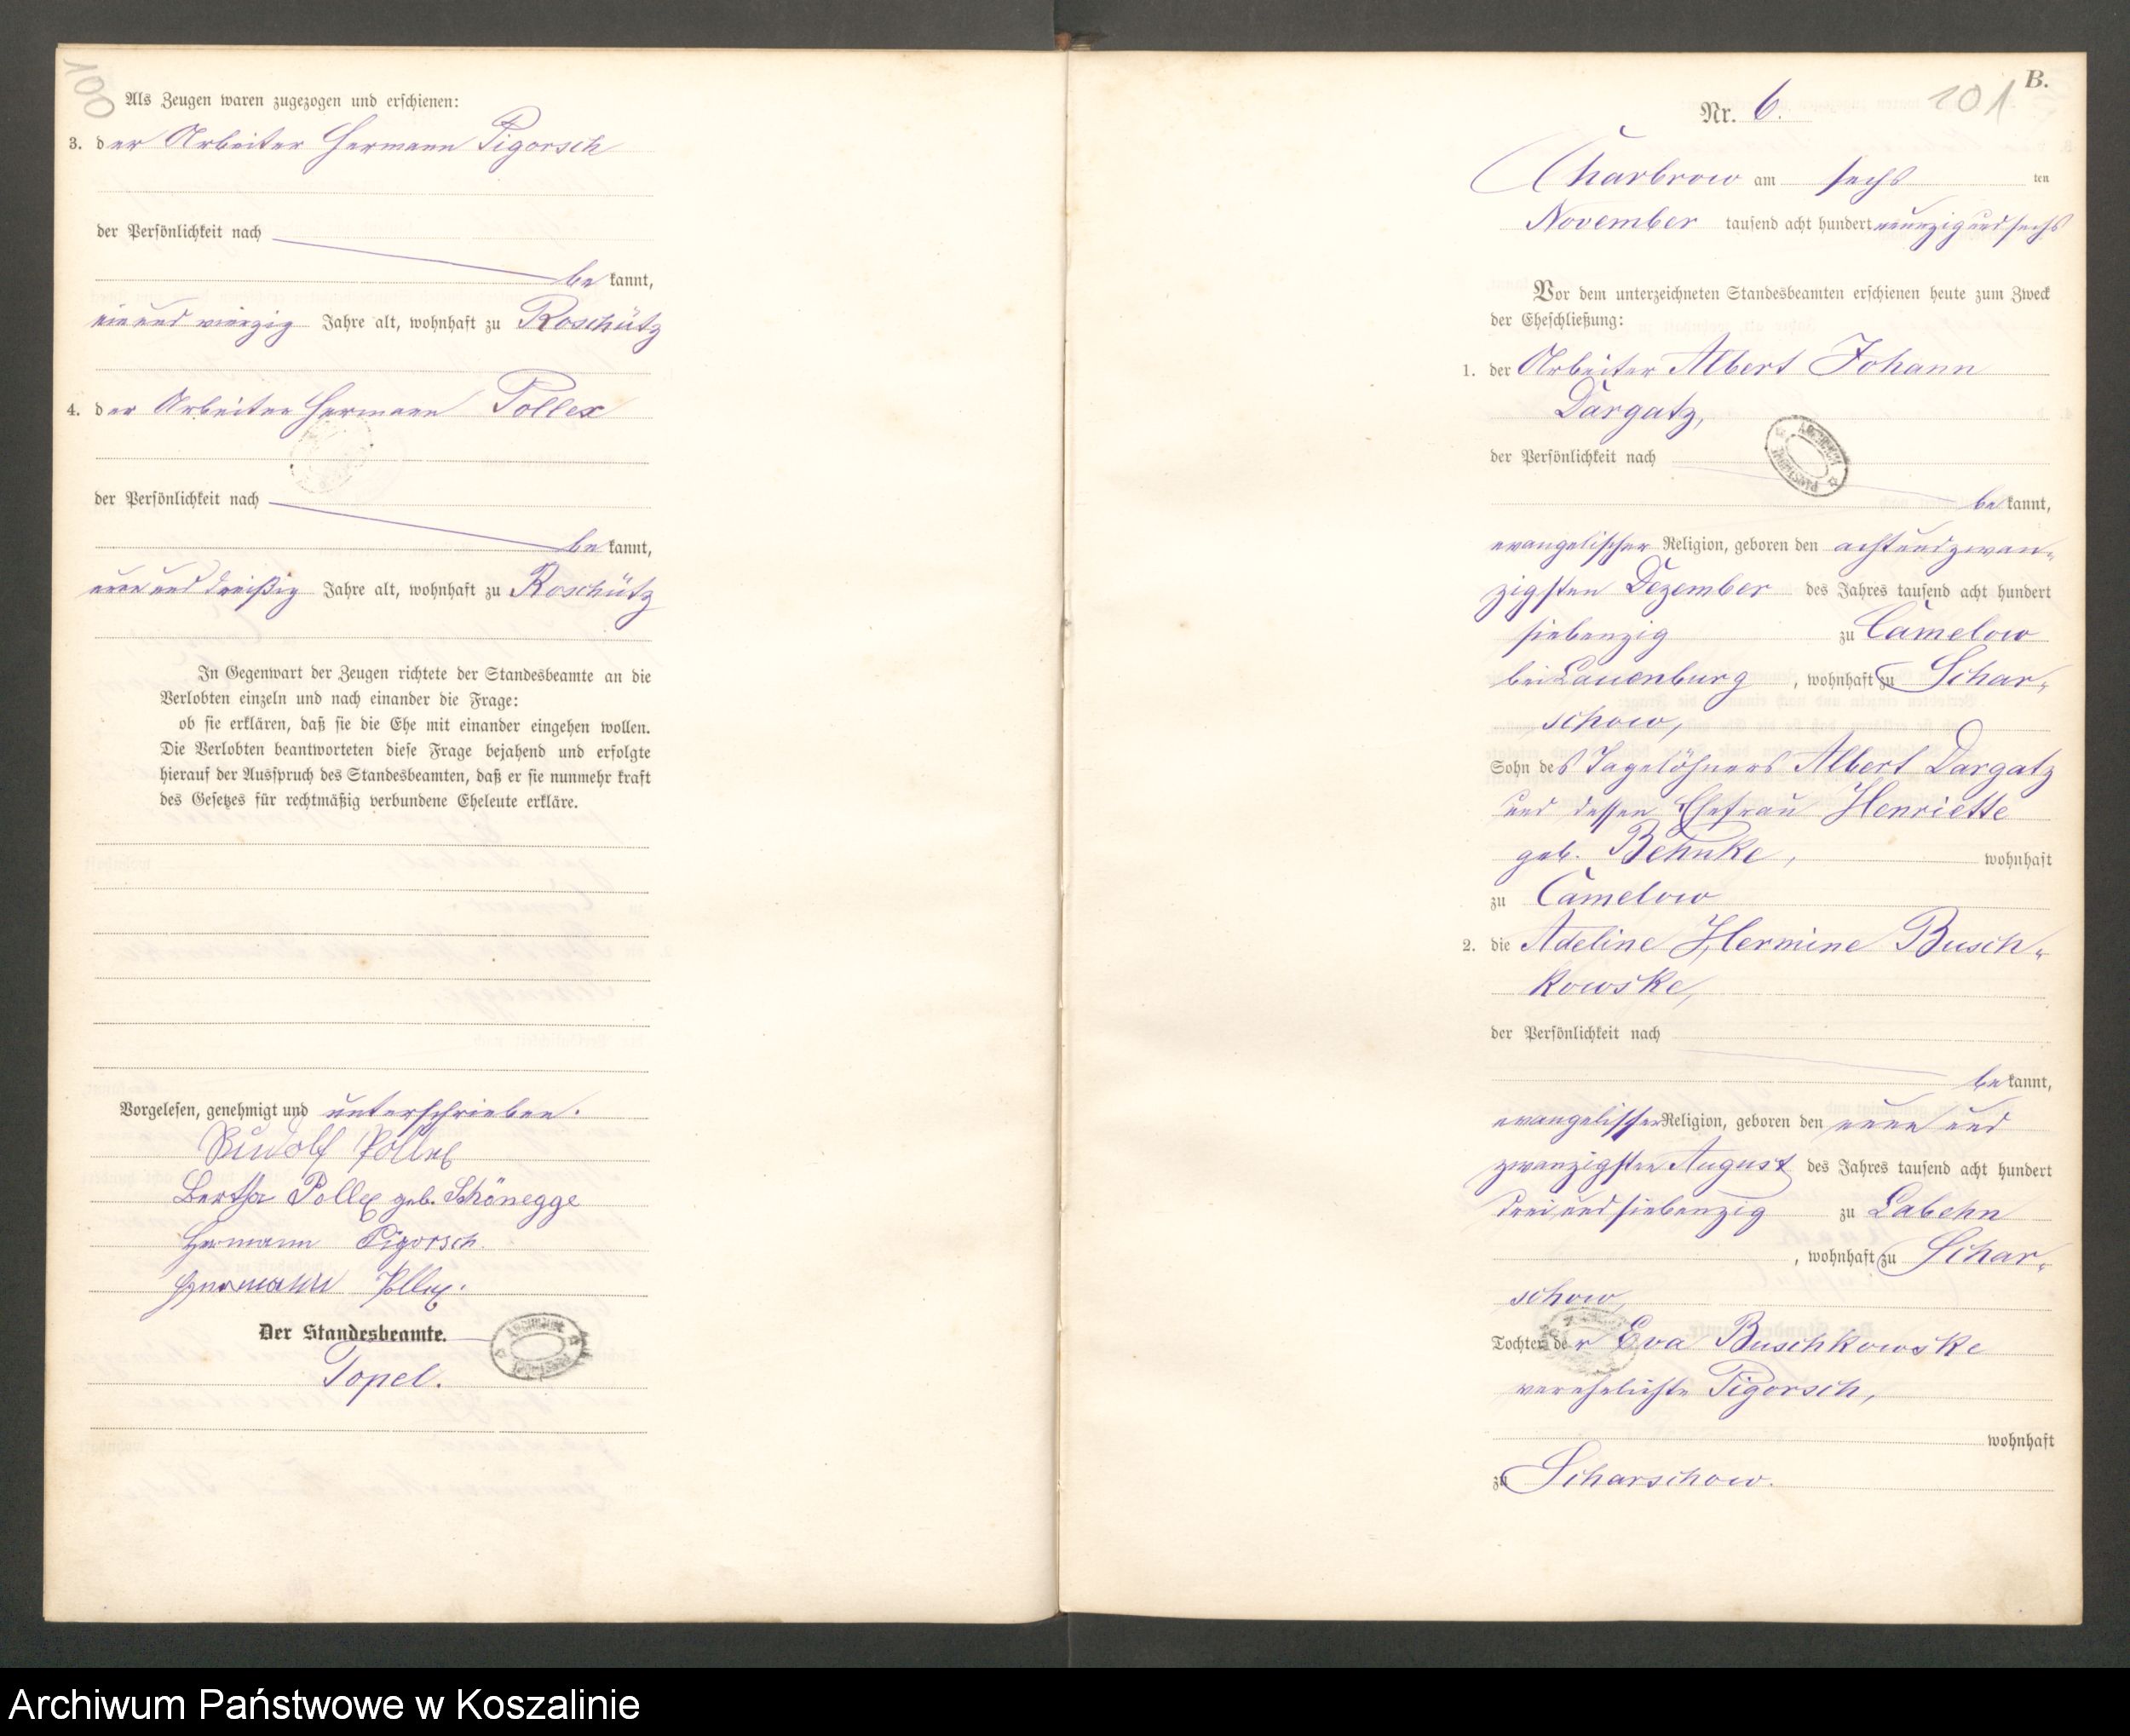 100
Als Zeugen waren zugezogen und erschienen:
3. der Arbeiter Hermann Pigorsch
der Persönlichkeit nach
bekannt,
ein und vierzig Jahre alt, wohnhaft zu Roschütz
4. der Arbeiter Hermann Pollex
der Persönlichkeit nach
bekannt,
neun und dreißig Jahre alt, wohnhaft zu Roschütz
In Gegenwart der Zeugen richtete der Standesbeamte an die
Verlobten einzeln und nach einander die Frage:
ob sie erklären, daß sie die Ehe mit einander eingehen wollen.
Die Verlobten beantworteten diese Frage bejahend und erfolgte
hierauf der Ausspruch des Standesbeamten, daß er sie nunmehr kraft
des Gesetzes für rechtmäßig verbundene Eheleute erkläre.
Vorgelesen, genehmigt und unterschrieben.
Rudolf Pollex
Bertha Pollex geb. Schönegge
Hermann Pigorsch
Hermann Pollex.
Der Standesbeamte.
Topel.
B.
Nr. 6. 101
Charbrow am sechsten
November tausend acht hundert neunzig und sechs
Vor dem unterzeichneten Standesbeamten erschienen heute zum Zweck
der Eheschließung:
1. der Arbeiter Albert Johann
Dargatz,
der Persönlichkeit nach
bekannt,
evangelischer Religion, geboren den achtundzwan-
zigsten Dezember des Jahres tausend acht hundert
siebenzig zu Camelow
bei Lauenburg, wohnhaft zu Schar-
schow,
Sohn des Tagelöhners Albert Dargatz
und dessen Ehefrau Henriette
geb. Behnke, wohnhaft
zu Camelow
2. die Adeline Hermine Busch-
kowske,
der Persönlichkeit nach
bekannt,
evangelischer Religion, geboren den neun und
zwanzigsten August des Jahres tausend acht hundert
drei und siebenzig zu Labehn
, wohnhaft zu Schar-
schow,
Tochter der Eva Buschkowske
verehelichte Pigorsch,
wohnhaft
zu Scharschow.
Archiwum Państwowe w Koszalinie